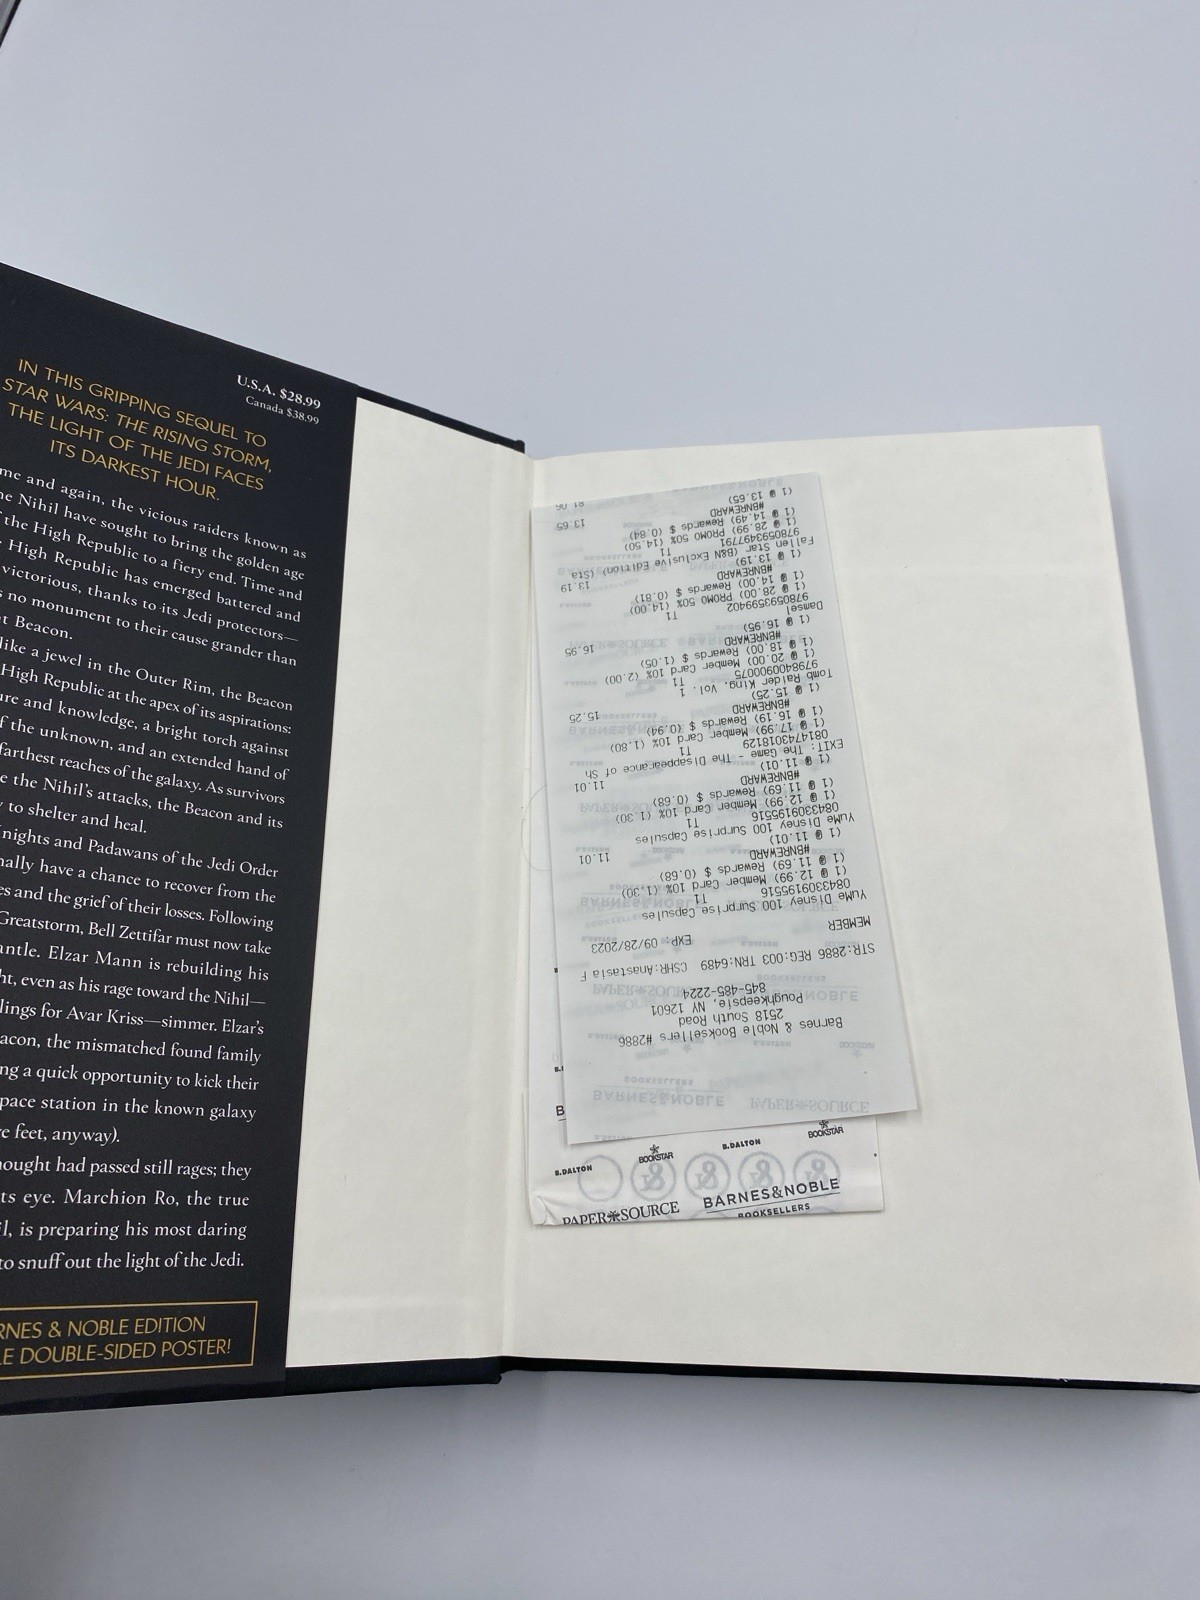 U.S.A. $28.99
Canada $38.99
IN THIS GRIPPING SEQUEL TO
STAR WARS: THE RISING STORM,
THE LIGHT OF THE JEDI FACES
ITS DARKEST HOUR.
me and again, the vicious raiders known as
Nihil have sought to bring the golden age
the High Republic to a fiery end. Time and
High Republic has emerged battered and
victorious, thanks to its Jedi protectors—
no monument to their cause grander than
Beacon.
like a jewel in the Outer Rim, the Beacon
High Republic at the apex of its aspirations:
and knowledge, a bright torch against
the unknown, and an extended hand of
farthest reaches of the galaxy. As survivors
the Nihil's attacks, the Beacon and its
to shelter and heal.
nights and Padawans of the Jedi Order
nally have a chance to recover from the
es and the grief of their losses. Following
Greatstorm, Bell Zettifar must now take
antle. Elzar Mann is rebuilding his
ht, even as his rage toward the Nihil—
lings for Avar Kriss—simmer. Elzar's
acon, the mismatched found family
ng a quick opportunity to kick their
pace station in the known galaxy
e feet, anyway).
hought had passed still rages; they
ts eye. Marchion Ro, the true
il, is preparing his most daring
to snuff out the light of the Jedi.
RNES & NOBLE EDITION
LE DOUBLE-SIDED POSTER!
Barnes & Noble Booksellers #2886
2518 South Road
Poughkeepsie, NY 12601
845-485-2224
STR:2886 REG:003 TRN:6489 CSHR:Anastasia F
MEMBER EXP: 09/28/2023
YuMe Disney 100 Surprise Capsules
0843309195516 T1
(1 @ 12.99) Member Card 10% (1.30)
(1 @ 11.69) Rewards $ (0.68)
#BNREWARD
(1 @ 11.01) 11.01
YuMe Disney 100 Surprise Capsules
0843309195516 T1
(1 @ 12.99) Member Card 10% (1.30)
(1 @ 11.69) Rewards $ (0.68)
#BNREWARD
(1 @ 11.01) 11.01
EXIT: The Game - The Disappearance of Sh
0814743018129 T1
(1 @ 17.99) Member Card 10% (1.80)
(1 @ 16.19) Rewards $ (0.94)
#BNREWARD
(1 @ 15.25) 15.25
Tomb Raider King, Vol. 1
9798400900075 T1
(1 @ 20.00) Member Card 10% (2.00)
(1 @ 18.00) Rewards $ (1.05)
#BNREWARD
(1 @ 16.95) 16.95
Damsel
9780593599402 T1
(1 @ 28.00) PROMO 50% (14.00)
(1 @ 14.00) Rewards $ (0.81)
#BNREWARD
(1 @ 13.19) 13.19
Fallen Star (B&N Exclusive Edition) (Sta
9780593497791 T1
(1 @ 28.99) PROMO 50% (14.50)
(1 @ 14.49) Rewards $ (0.84)
#BNREWARD
(1 @ 13.65) 13.65
BARNES&NOBLE
BOOKSELLERS
PAPER SOURCE
B.DALTON
BOOKSTAR
B.DALTON
BOOKSTAR
PAPER SOURCE
BARNES&NOBLE
BOOKSELLERS